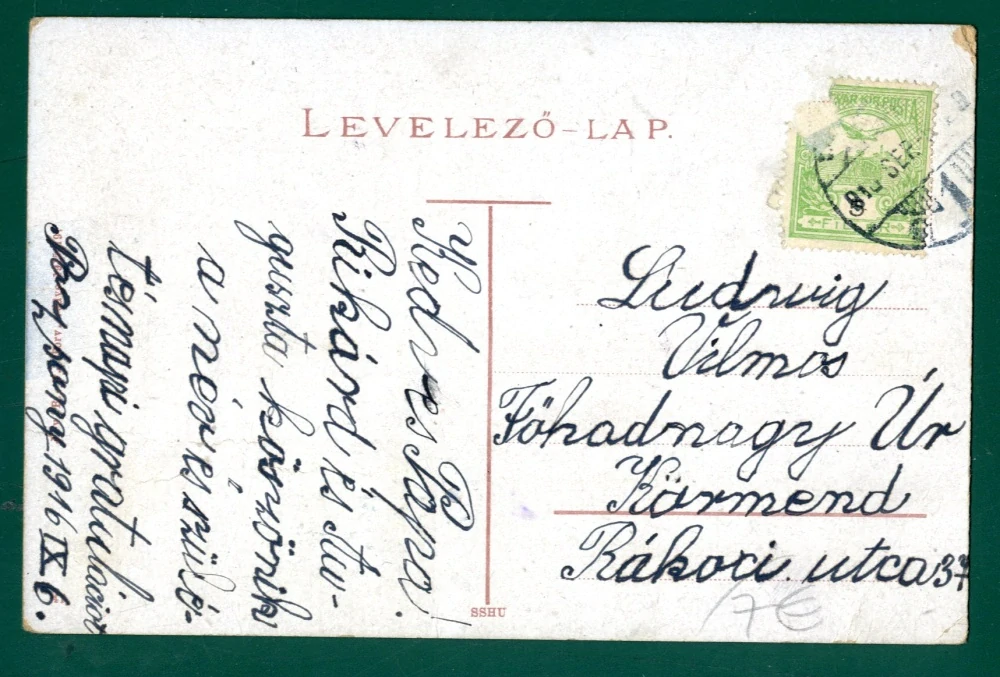 LEVELEZŐ-LAP.
MAGYAR KIR. POSTA
916 SEP
Kedves Papa!
Rikárd és Au-
guszta köszönik
a név és szülő-
témapi gratulációt
Pozsony. 1916 IX 6.
Ludwig
Vilmos
Főhadnagy Úr
Körmend
Rákoci utca 37
SSHU
7€